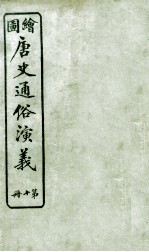 繪圖
唐史通俗演義
第十冊